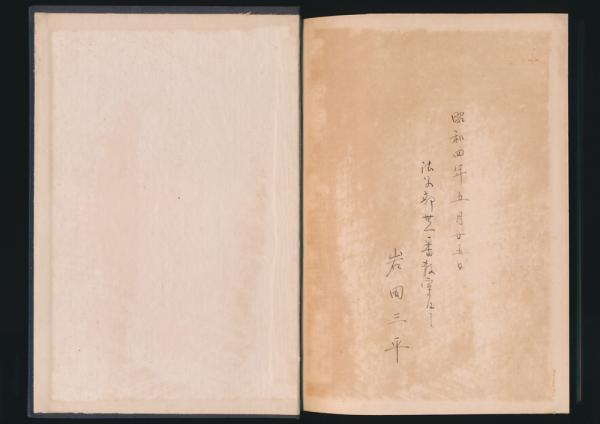 昭和四年五月廿五日
法学部廿一番教室にて
岩田三平